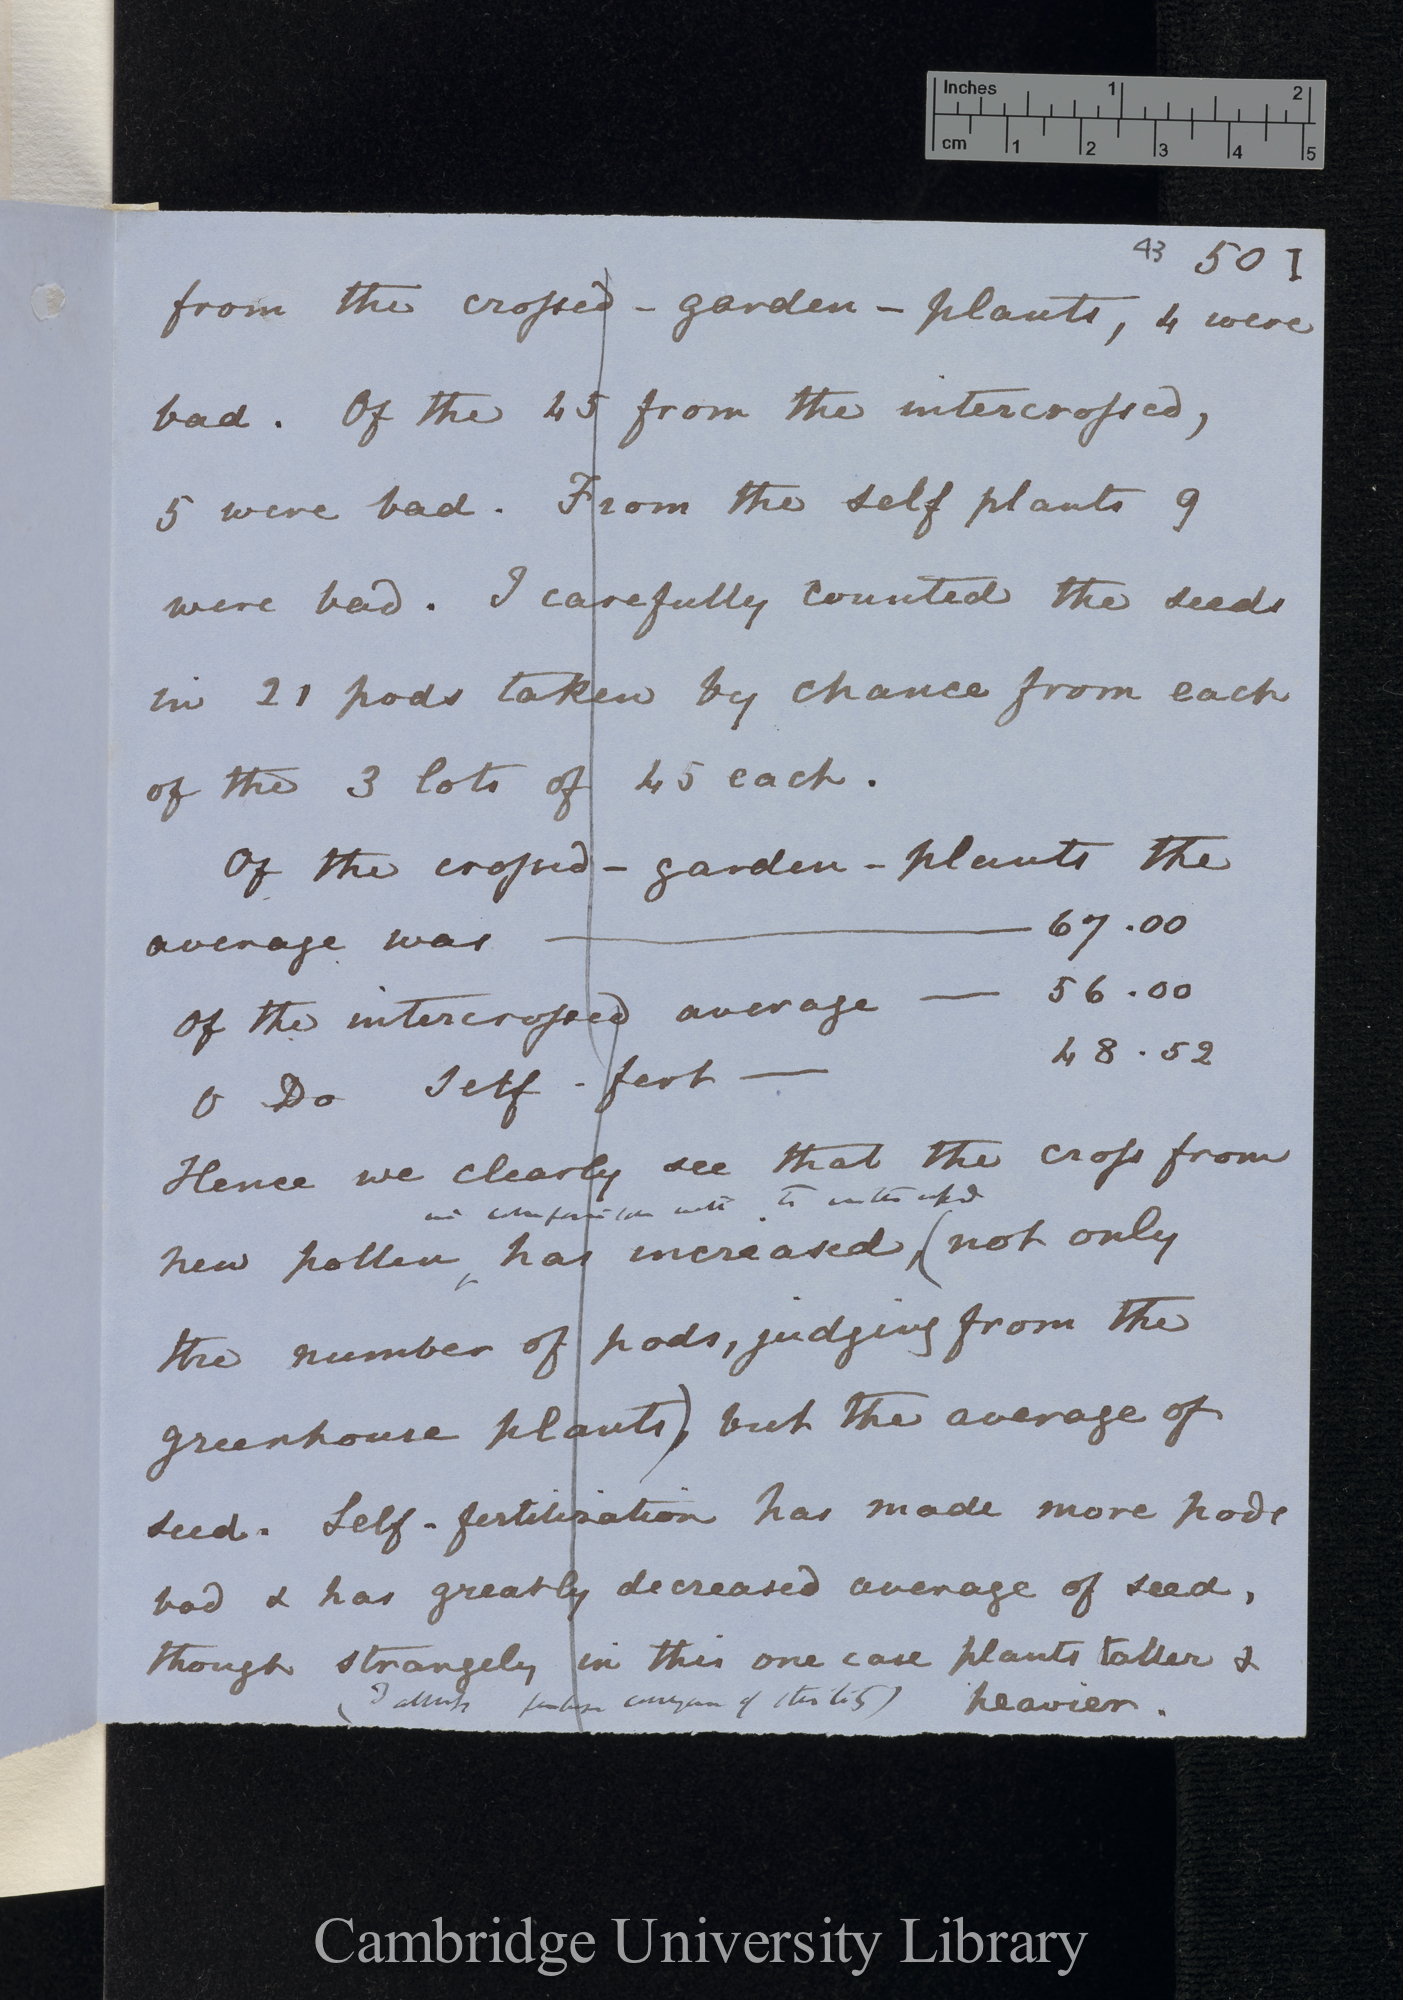 Inches 1 2
cm 1 2 3 4 5
43 50 I
from the crossed - garden - plants, 4 were
bad. Of the 45 from the intercrossed,
5 were bad. From the self plants 9
were bad. I carefully counted the seeds
in 21 pods taken by chance from each
of the 3 lots of 45 each.
Of the crossed - garden - plants the
average was — 67.00
Of the intercrossed average — 56.00
O Do Self - fert — 48.52
Hence we clearly see that the cross from
in comparison with to intercrossed
new pollen, has increased, (not only
the number of pods, judging from the
greenhouse plants) but the average of
seed. Self-fertilisation has made more pods
bad & has greatly decreased average of seed,
though strangely in this one case plants taller &
heavier.
(I of sterility)
Cambridge University Library